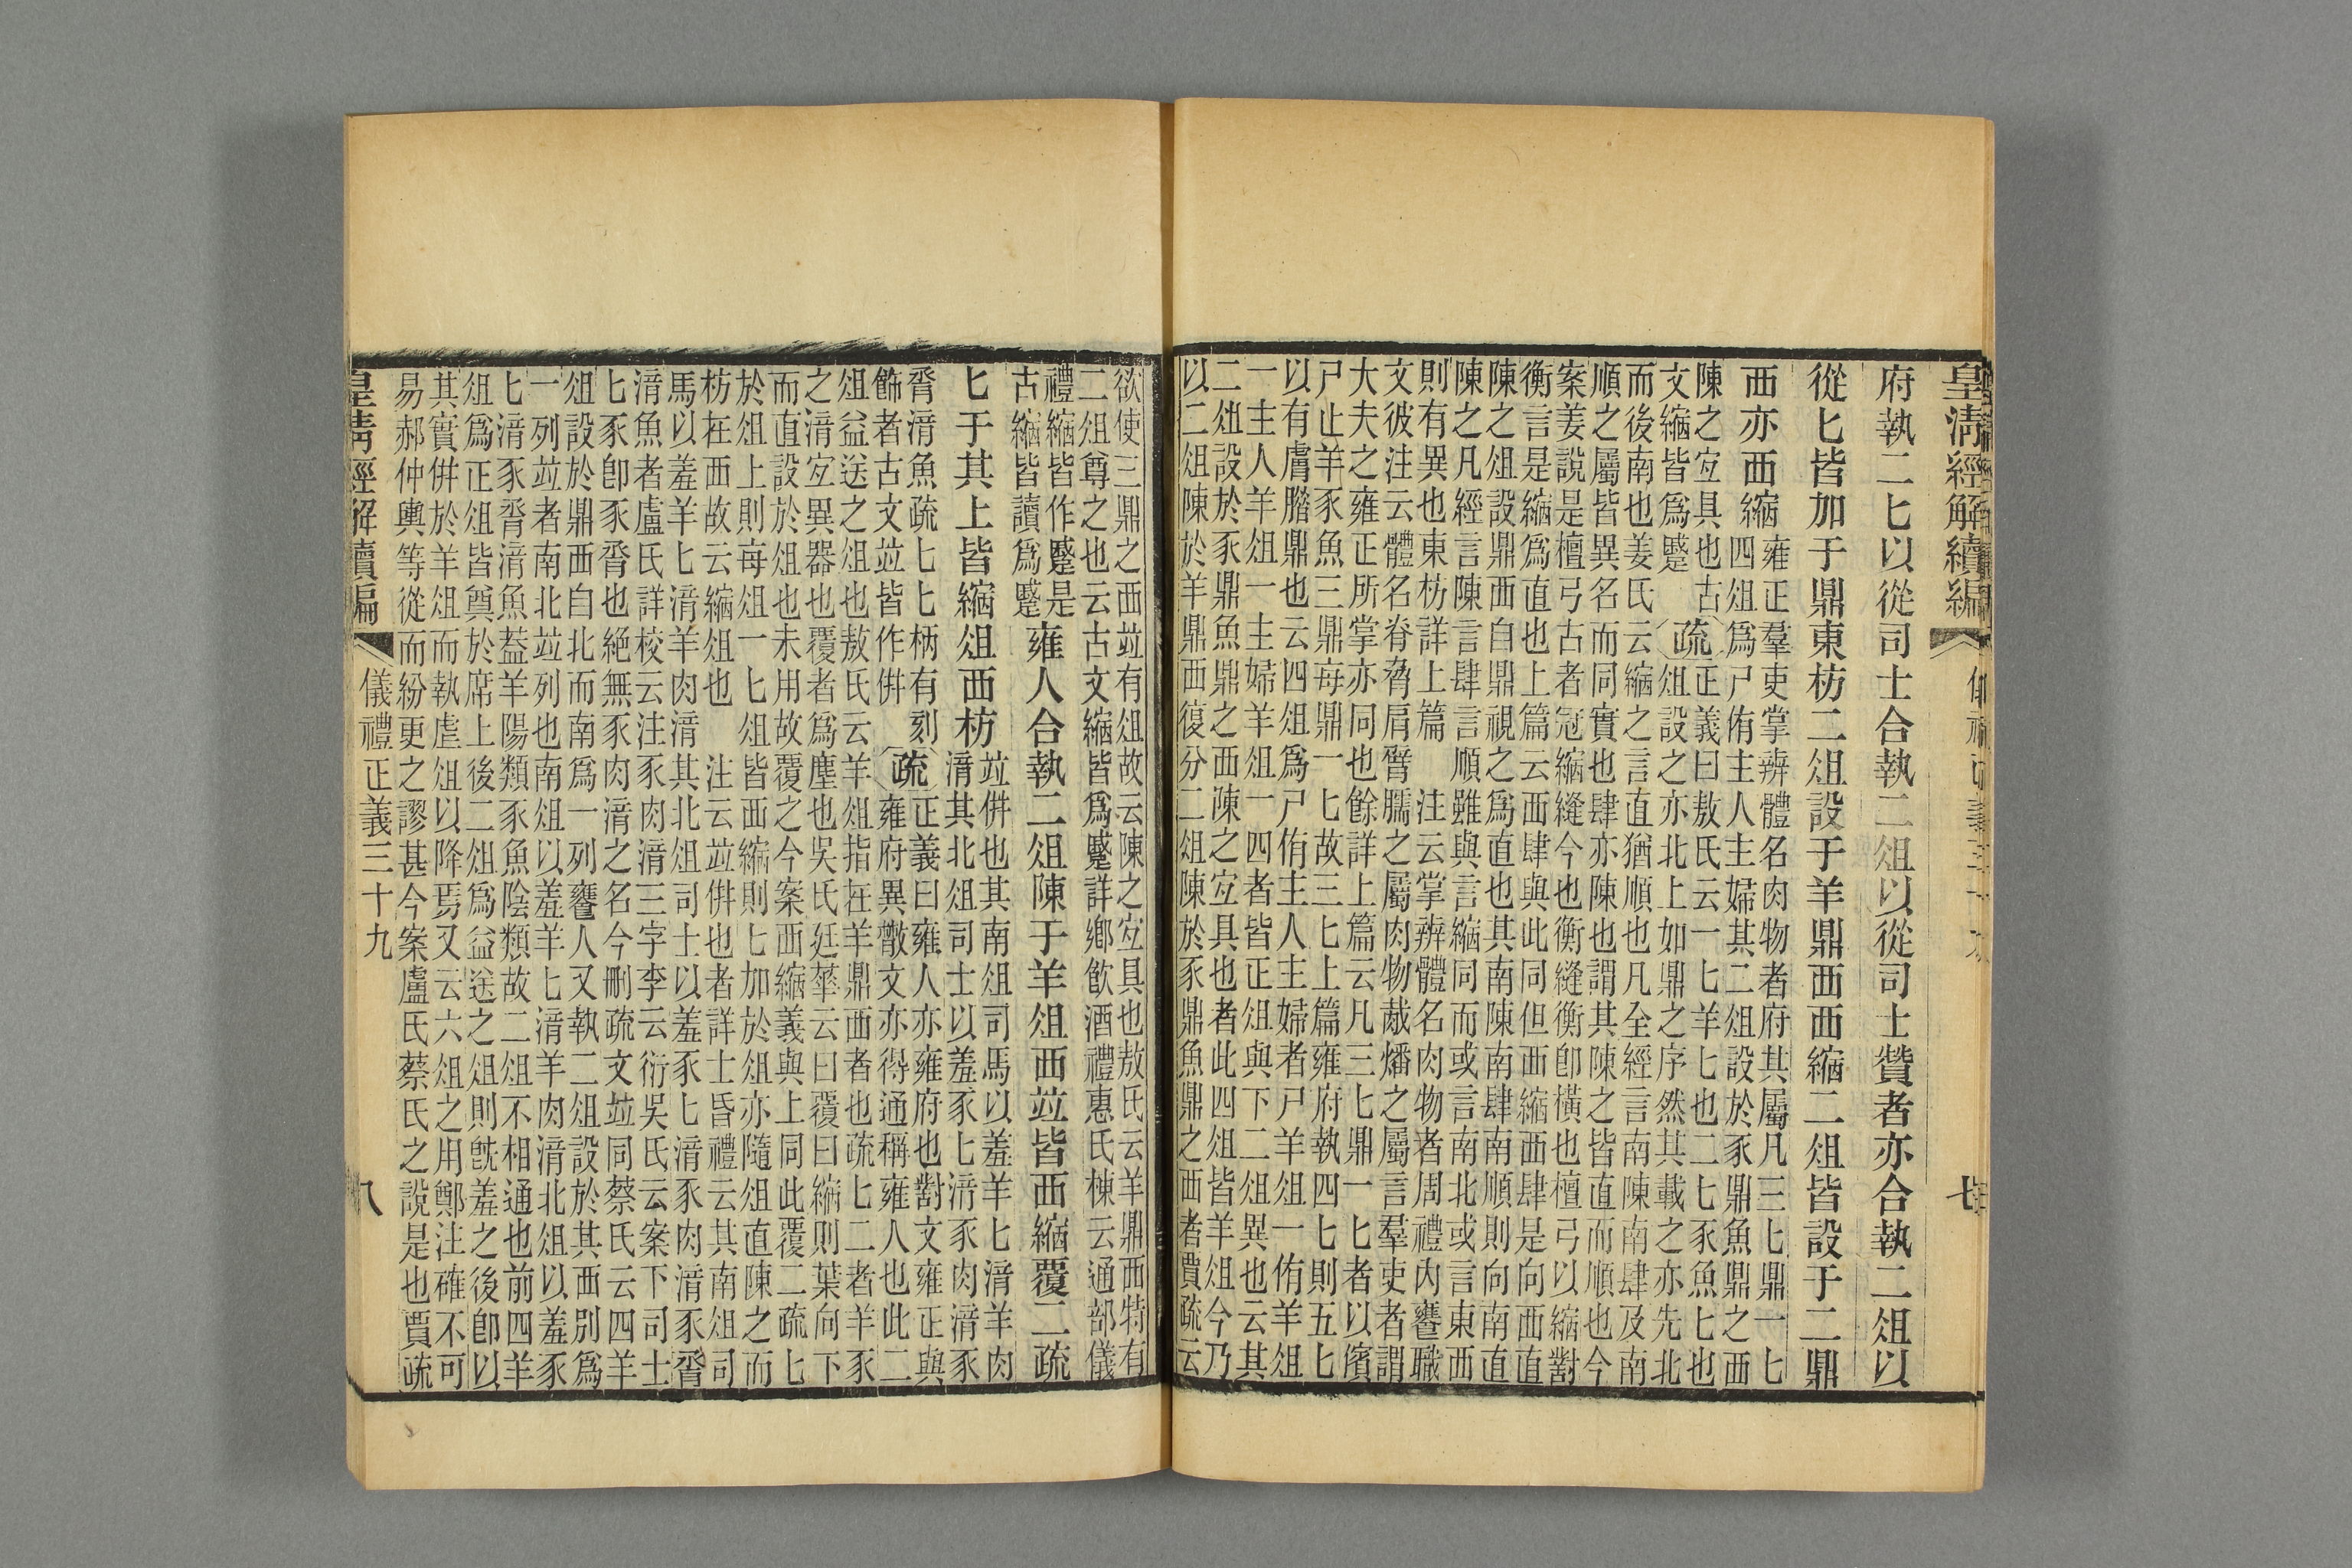 皇清經解續編
七
府執二匕以從司士合執二俎以從司士贊者亦合執二俎以
從匕皆加于鼎東枋二俎設于羊鼎西西縮二俎皆設于二鼎
西亦西縮
雍正羣吏掌辨體名肉物者府其屬凡三匕鼎一匕
四俎爲尸侑主人主婦其二俎設於豕鼎魚鼎之西
陳之宐具也古
文縮皆爲蹙
疏
正義曰敖氏云一匕羊匕也二匕豕魚匕也
俎設之亦北上如鼎之序然其載之亦先北
而後南也姜氏云縮之言直猶順也凡全經言南陳南肆及南
順之屬皆異名而同實也肆亦陳也謂其陳之皆直而順也今
案姜說是檀弓古者冠縮縫今也衡縫衡卽橫也檀弓以縮對
衡言是縮爲直也上篇云西肆與此同但西縮西肆是向西直
陳之俎設鼎西自鼎視之爲直也其南陳南肆南順則向南直
陳之凡經言陳言肆言順雖與言縮同而或言南北或言東西
則有異也東枋詳上篇 注云掌辨體名肉物者周禮內饔職
文彼注云體名脊脅肩臂臑之屬肉物胾燔之屬言羣吏者謂
大夫之雍正所掌亦同也餘詳上篇云凡三匕鼎一匕者以儐
尸止羊豕魚三鼎每鼎一匕故三匕上篇雍府執四匕則五匕
以有膚腊鼎也云四俎爲尸侑主人主婦者尸羊俎一侑羊俎
一主人羊俎一主婦羊俎一四者皆正俎與下二俎異也云其
二俎設於豕鼎魚鼎之西陳之宐具也者此四俎皆羊俎今乃
以二俎陳於羊鼎西復分二俎陳於豕鼎魚鼎之西者賈疏云
欲使三鼎之西竝有俎故云陳之宐具也敖氏云羊鼎西特有
二俎尊之也云古文縮皆爲蹙詳鄉飲酒禮惠氏棟云通部儀
禮縮皆作蹙是
古縮皆讀爲蹙
雍人合執二俎陳于羊俎西竝皆西縮覆二疏
匕于其上皆縮俎西枋
竝倂也其南俎司馬以羞羊匕湆羊肉
湆其北俎司士以羞豕匕湆豕肉湆豕
脀湆魚疏匕匕柄有刻
飾者古文竝皆作倂
疏
正義曰雍人亦雍府也對文雍正與
雍府異散文亦得通稱雍人也此二
俎益送之俎也敖氏云羊俎指在羊鼎西者也疏匕二者羊豕
之湆宐異器也覆者爲塵也吳氏廷華云曰覆曰縮則葉向下
而直設於俎也未用故覆之今案西縮義與上同此覆二疏匕
於俎上則每俎一匕俎皆西縮則匕加於俎亦隨俎直陳之而
枋在西故云縮俎也 注云竝倂也者詳士昏禮云其南俎司
馬以羞羊匕湆羊肉湆其北俎司士以羞豕匕湆豕肉湆豕脀
湆魚者盧氏詳校云注豕肉湆三字李云衍吳氏云案下司士
匕豕卽豕脀也絕無豕肉湆之名今刪疏文竝同蔡氏云四羊
俎設於鼎西自北而南爲一列饔人又執二俎設於其西別爲
一列竝者南北竝列也南俎以羞羊匕湆羊肉湆北俎以羞豕
匕湆豕脀湆魚葢羊陽類豕魚陰類故二俎不相通也前四羊
俎爲正俎皆奠於席上後二俎爲益送之俎則旣羞之後卽以
其實倂於羊俎而執虛俎以降焉又云六俎之用鄭注確不可
易郝仲輿等從而紛更之謬甚今案盧氏蔡氏之說是也賈疏
皇清經解續編
儀禮正義三十九
八